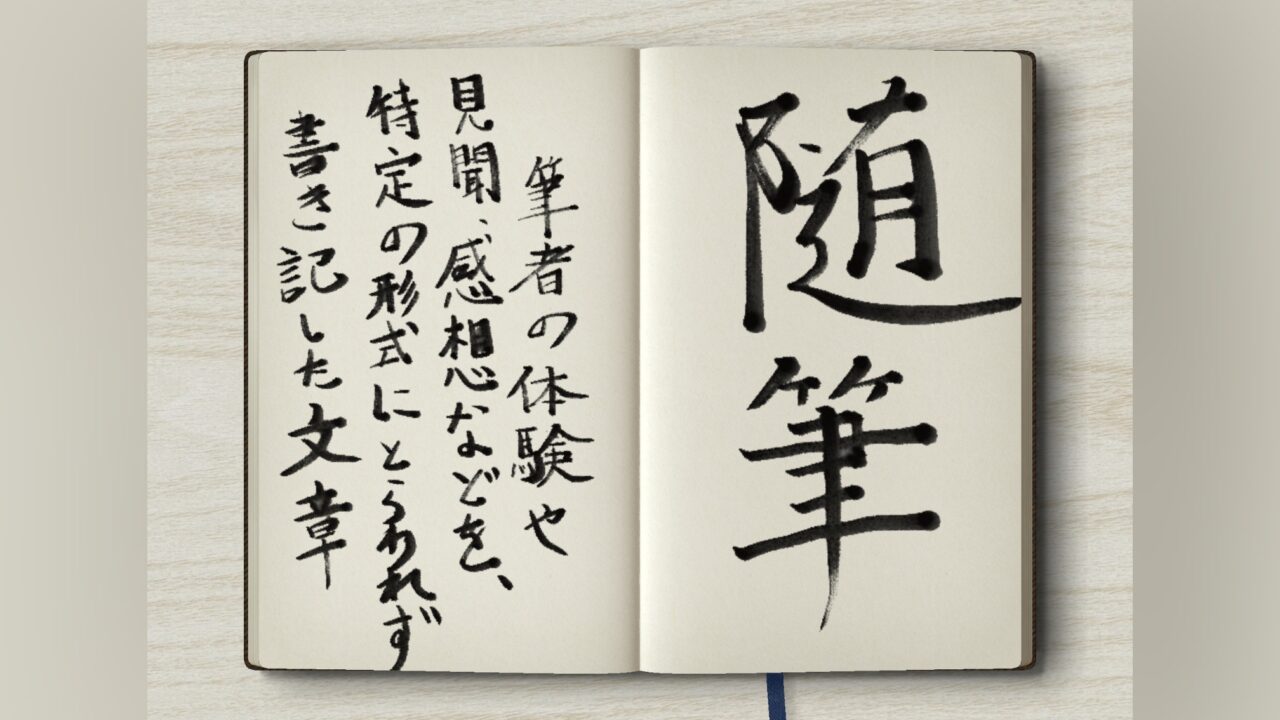 随筆
筆者の体験や
見聞、感想などを、
特定の形式にとらわれず
書き記した文章